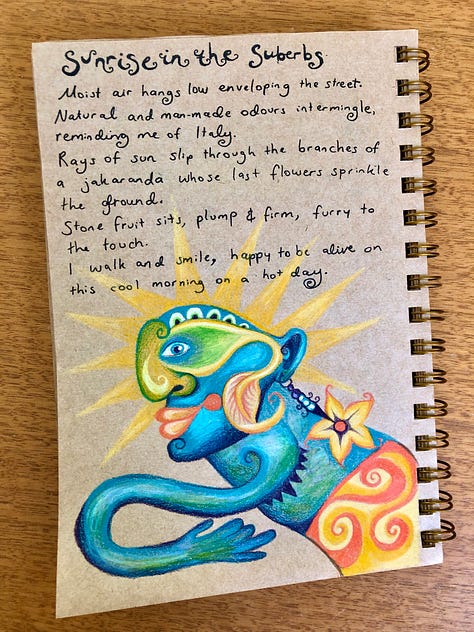 Sunrise in the Suberbs
Moist air hangs low enveloping the street.
Natural and man-made odours intermingle,
reminding me of Italy.
Rays of sun slip through the branches of
a jakaranda whose last flowers sprinkle
the ground.
Stone fruit sits, plump & firm, furry to
the touch.
I walk and smile, happy to be alive on
this cool morning on a hot day.